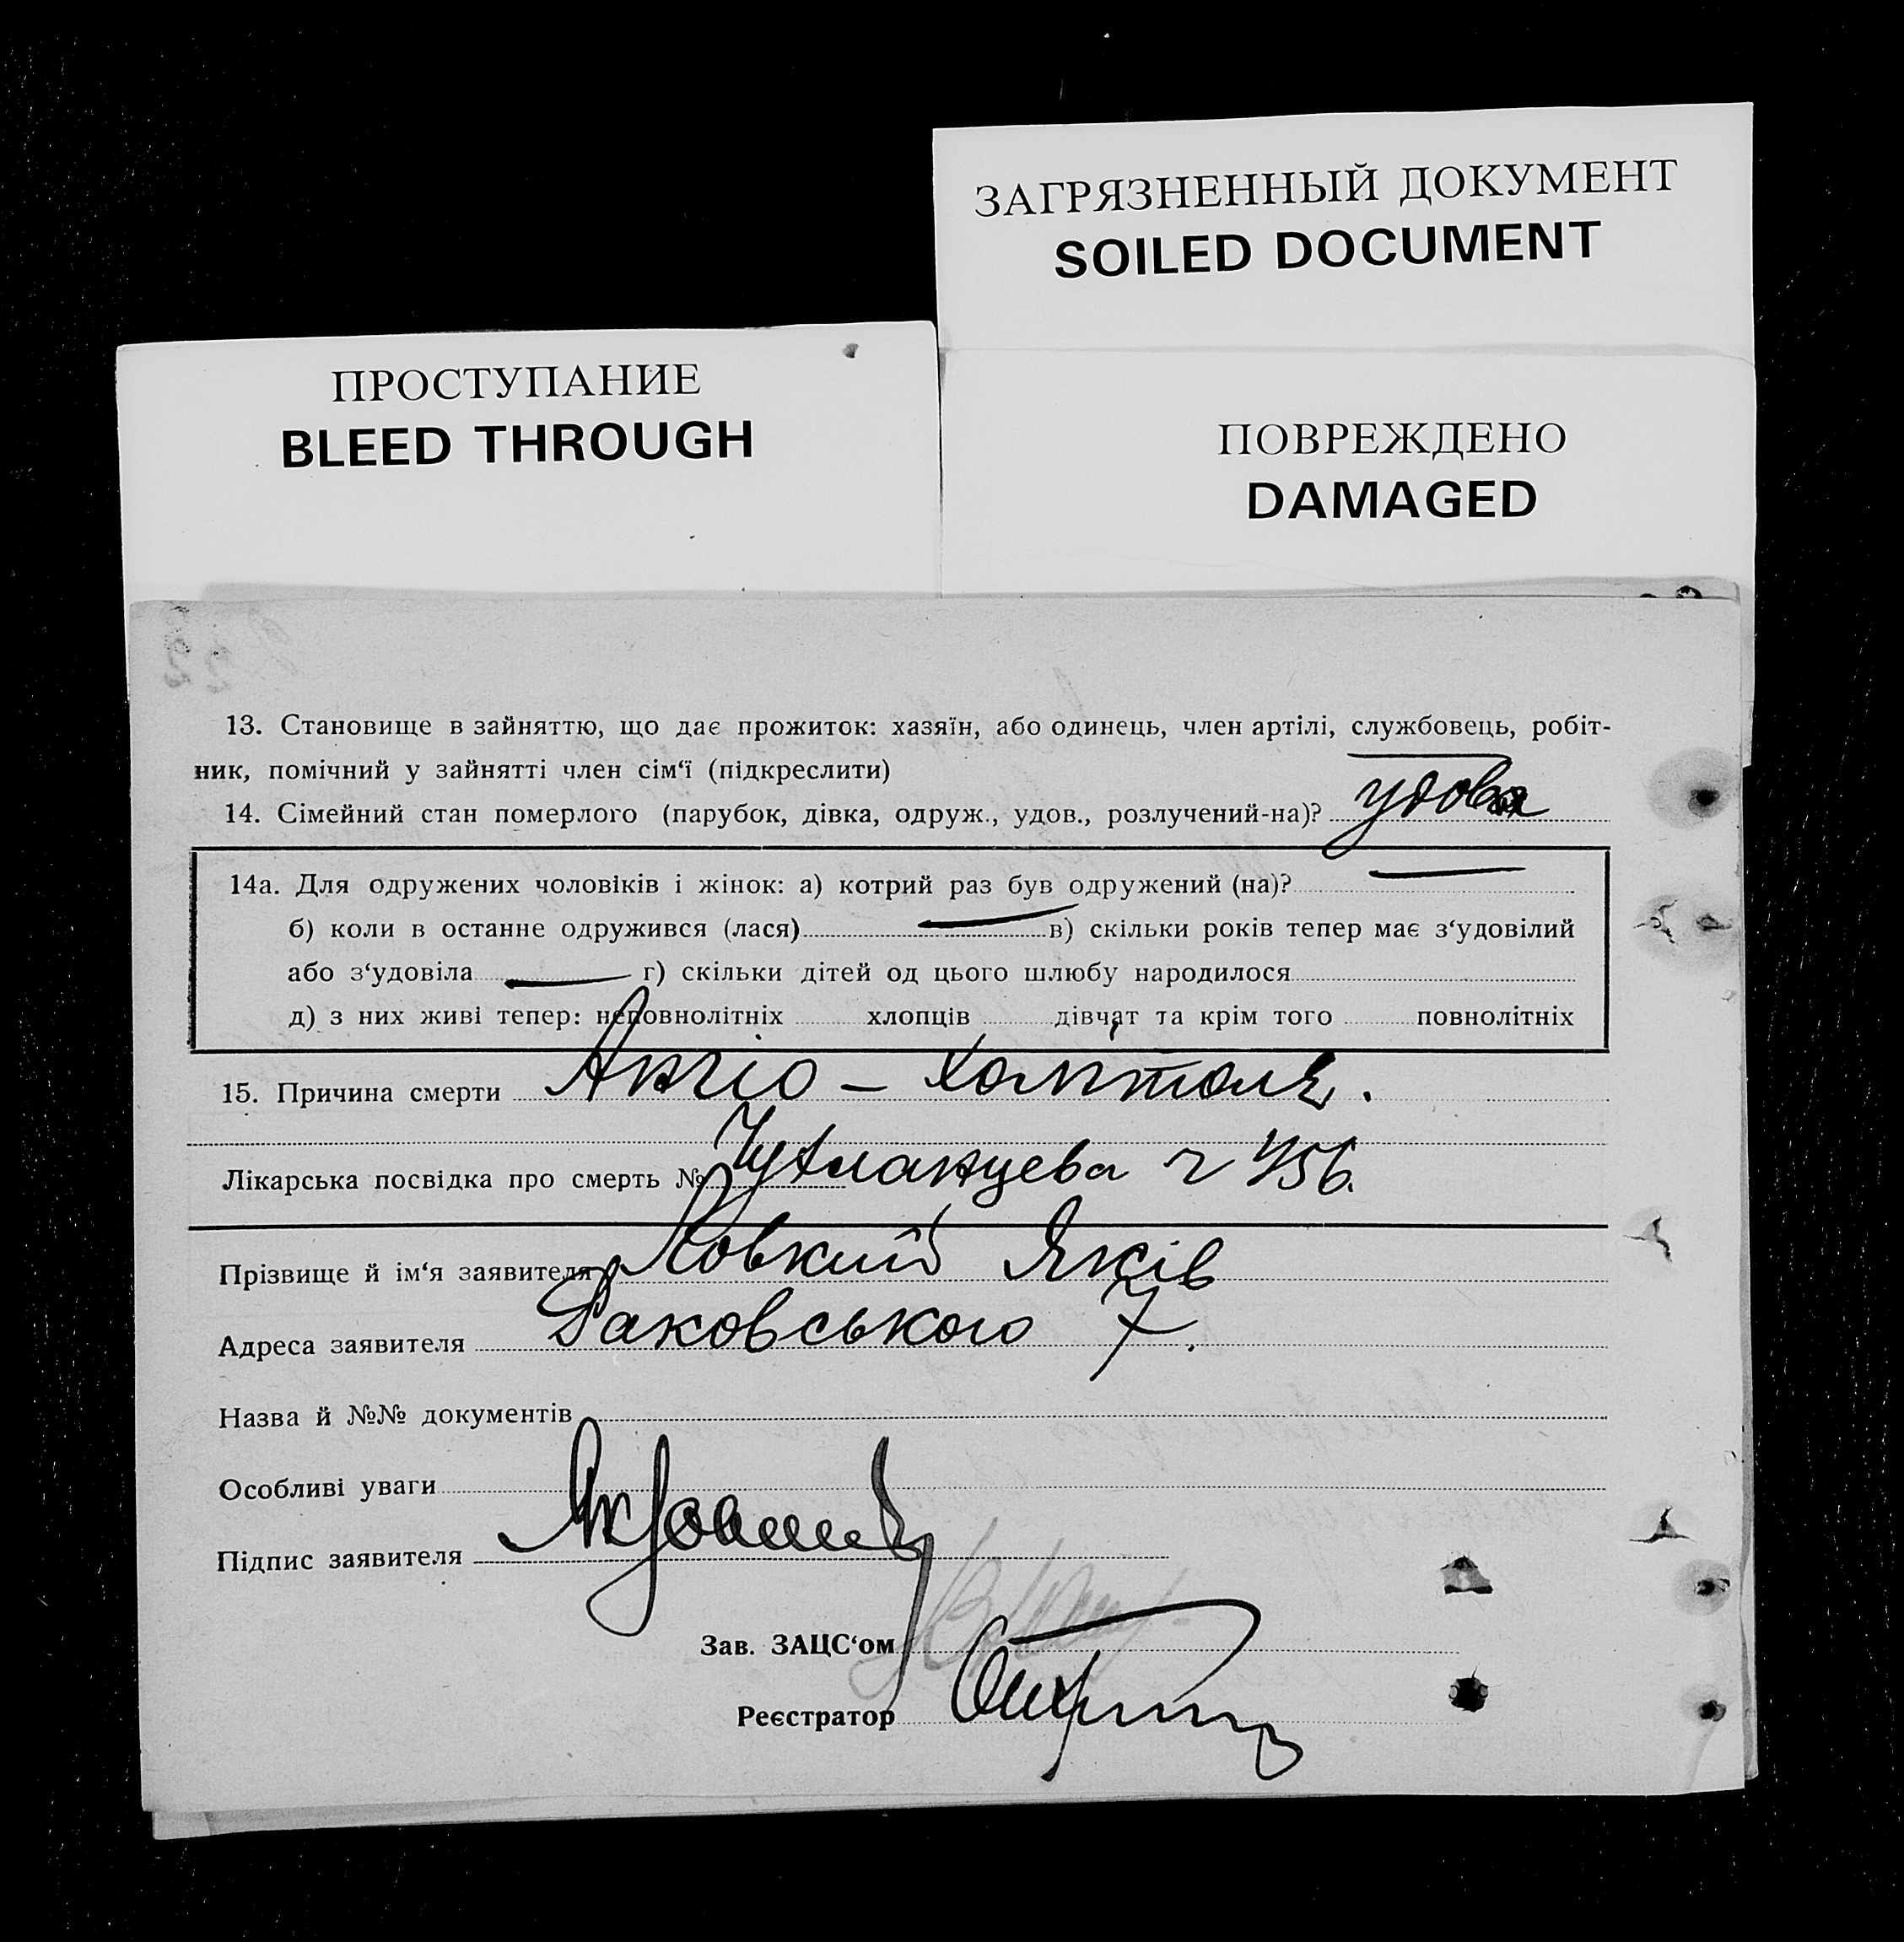 ЗАГРЯЗНЕННЫЙ ДОКУМЕНТ
SOILED DOCUMENT
ПРОСТУПАНИЕ
BLEED THROUGH
ПОВРЕЖДЕНО
DAMAGED
13. Становище в зайняттю, що дає прожиток: хазяїн, або одинець, член артілі, службовець, робіт-
ник, помічний у зайнятті член сім‘ї (підкреслити)
14. Сімейний стан померлого (парубок, дівка, одруж., удов., розлучений-на)? удова
14а. Для одружених чоловіків і жінок: а) котрий раз був одружений (на)?
б) коли в останне одружився (лася) в) скільки років тепер має з‘удовілий
або з‘удовіла г) скільки дітей од цього шлюбу народилося
д) з них живі тепер: неповнолітніх хлопців дівчат та крім того повнолітніх
15. Причина смерти Ангіо –
Лікарська посвідка про смерть № 456.
Прізвище й ім‘я заявителя Яків
Адреса заявителя Раковського 7.
Назва й №№ документів
Особливі уваги
Підпис заявителя
Зав. ЗАЦС‘ом
Реєстратор